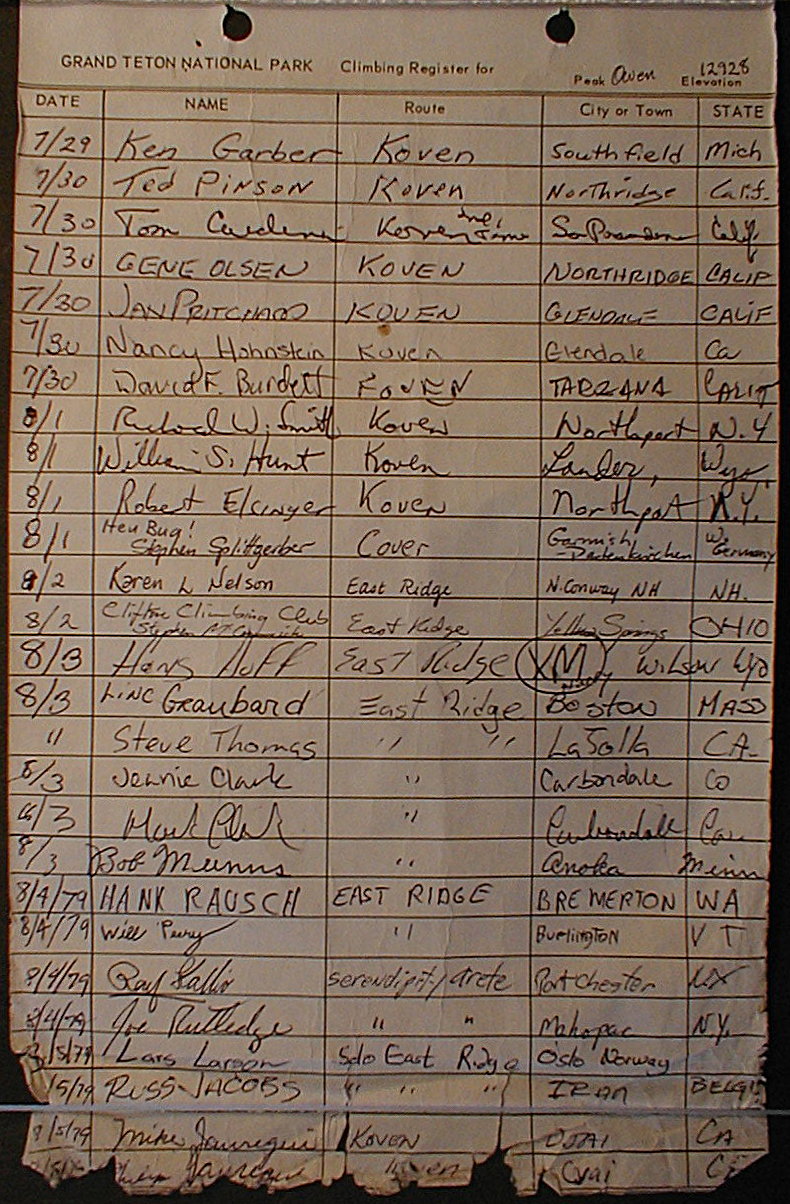 GRAND TETON NATIONAL PARK Climbing Register for Peak Owen 12928 Elevation
DATE NAME Route City or Town STATE
7/29 Ken Garber Koven Southfield Mich
7/30 Ted Pinson Koven Northridge Calif.
7/30 Tom Koven 2nd Time So Pasadena Calif
7/30 GENE OLSEN KOVEN NORTHRIDGE CALIF
7/30 JAN PRITCHARD KOVEN GLENDALE CALIF
7/30 Nancy Hohnstein Koven Glendale Ca
7/30 David F. Burdett KOVEN TARZANA CALIF
8/1 Richard W. Smith Koven Northport N.Y
8/1 William S. Hunt Koven Lander, Wyo.
8/1 Robert Elsinger Koven Northport N.Y.
8/1 Hey Bug! Stephen Splittgerber Cover Garmish Partenkirchen W. Germany
8/2 Karen L Nelson East Ridge N. Conway NH NH.
8/2 Clifton Climbing Club Stephen East Ridge Yellow Springs OHIO
8/3 Hans East Ridge Wilson Wyo
8/3 Linc Graubard East Ridge Boston MASS
" Steve Thomas " " LaJolla CA.
8/3 Jennie Clark " Carbondale CO
8/3 Mark Clark " Carbondale
8/3 Bob Munns " Anoka Minn
8/4/79 HANK RAUSCH EAST RIDGE BREMERTON WA
8/4/79 Will Perry " Burlington VT
8/4/79 Ray Serendipity Arete Port Chester
8/4/79 Joe Rutledge " " Mahopac N.Y.
8/5/79 Lars Larson Solo East Ridge Oslo Norway
/5/79 RUSS JACOBS " " " IRAN BELGI
8/5/79 Mike Jauregui KOVEN OJAI CA
Jauregui Koven Ojai